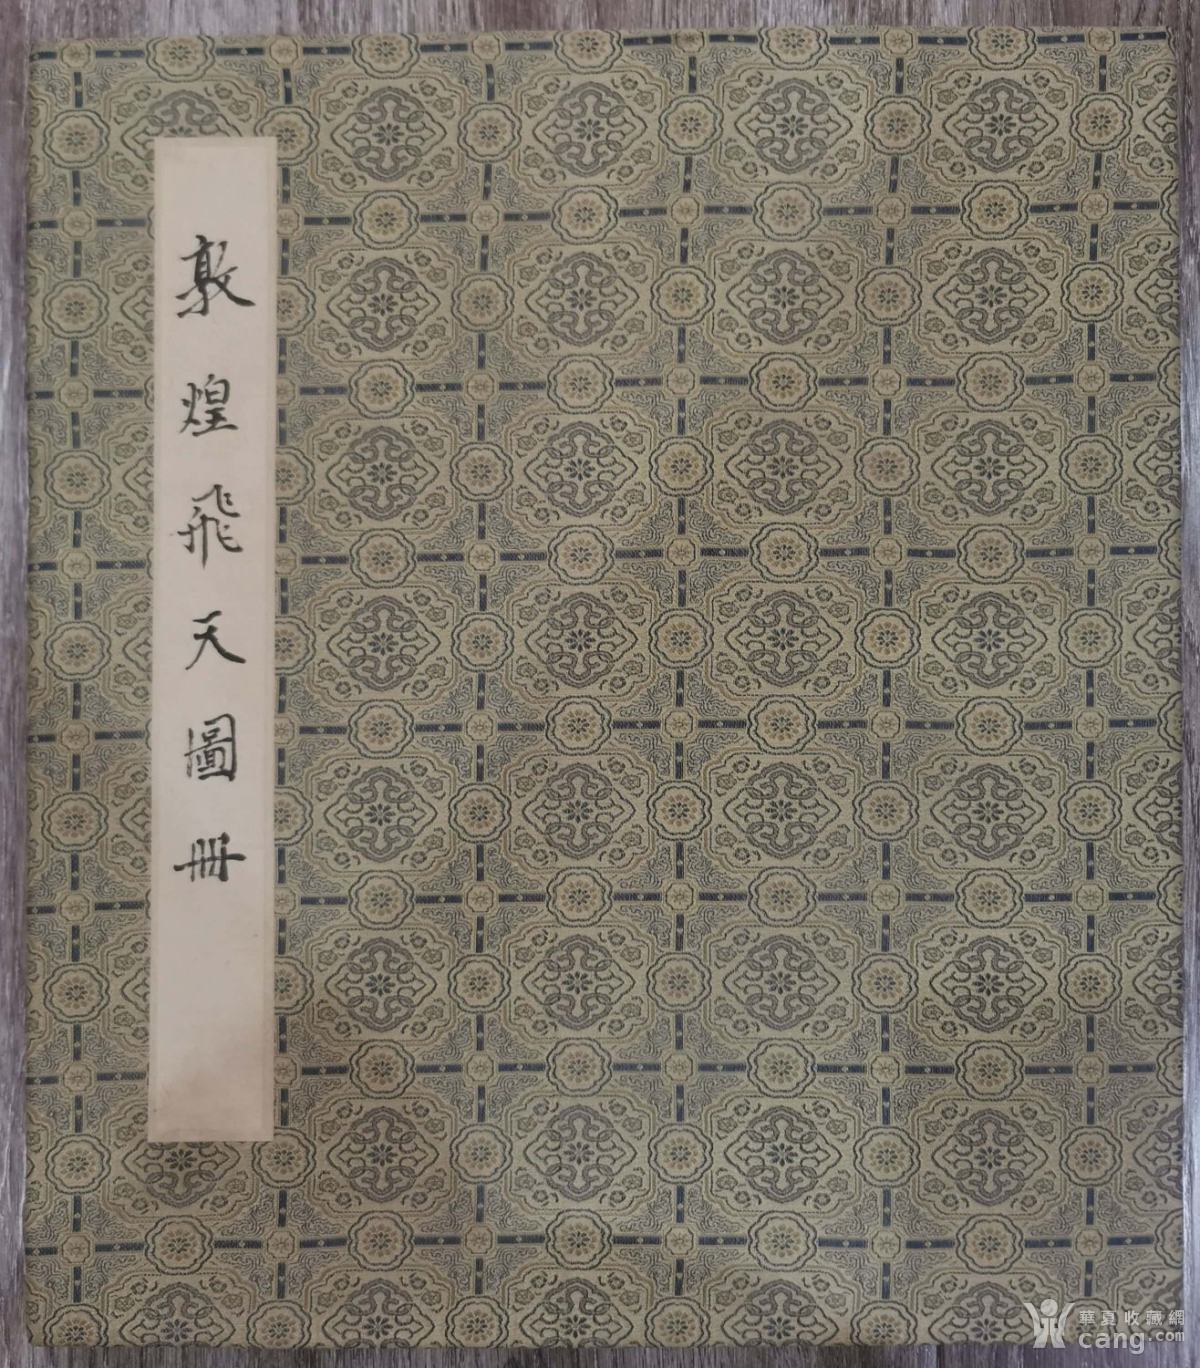 敦煌飛天圖冊
華夏收藏網
cang.com